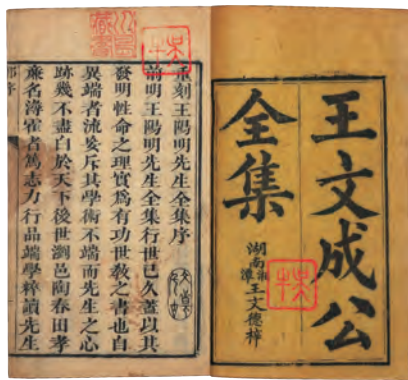 王文成公
全集
湖南湘潭王文德梓
重刻王陽明先生全集序
前明王陽明先生全集行世已久蓋以其
發明性命之理實爲有功世敎之書也自
異端者流妄斥其學術不端而先生之心
跡幾不盡白於天下後世瀏邑陶春田孝
廉名潯霍者篤志力行品端學粹讀先生